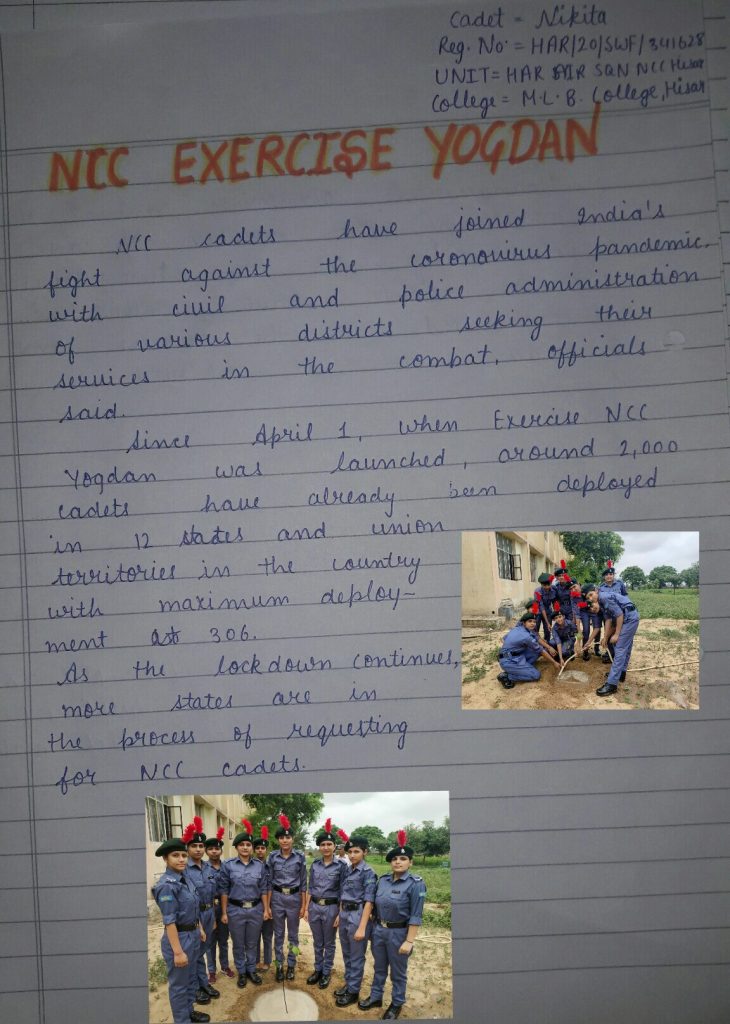 Cadet = Nikita
Reg. No = HAR/20/SWF/341628
UNIT = HAR AIR SQN NCC Hisar
College = M.L.B. College, Hisar
NCC EXERCISE YOGDAN
NCC cadets have joined India's
fight against the coronovirus pandemic.
with civil and police administration
of various districts seeking their
services in the combat, officials
said.
Since April 1, when Exercise NCC
Yogdan was launched, around 2,000
cadets have already been deployed
in 12 states and union
territories in the country
with maximum deploy-
ment at 306.
As the lockdown continues,
more states are in
the process of requesting
for NCC cadets.